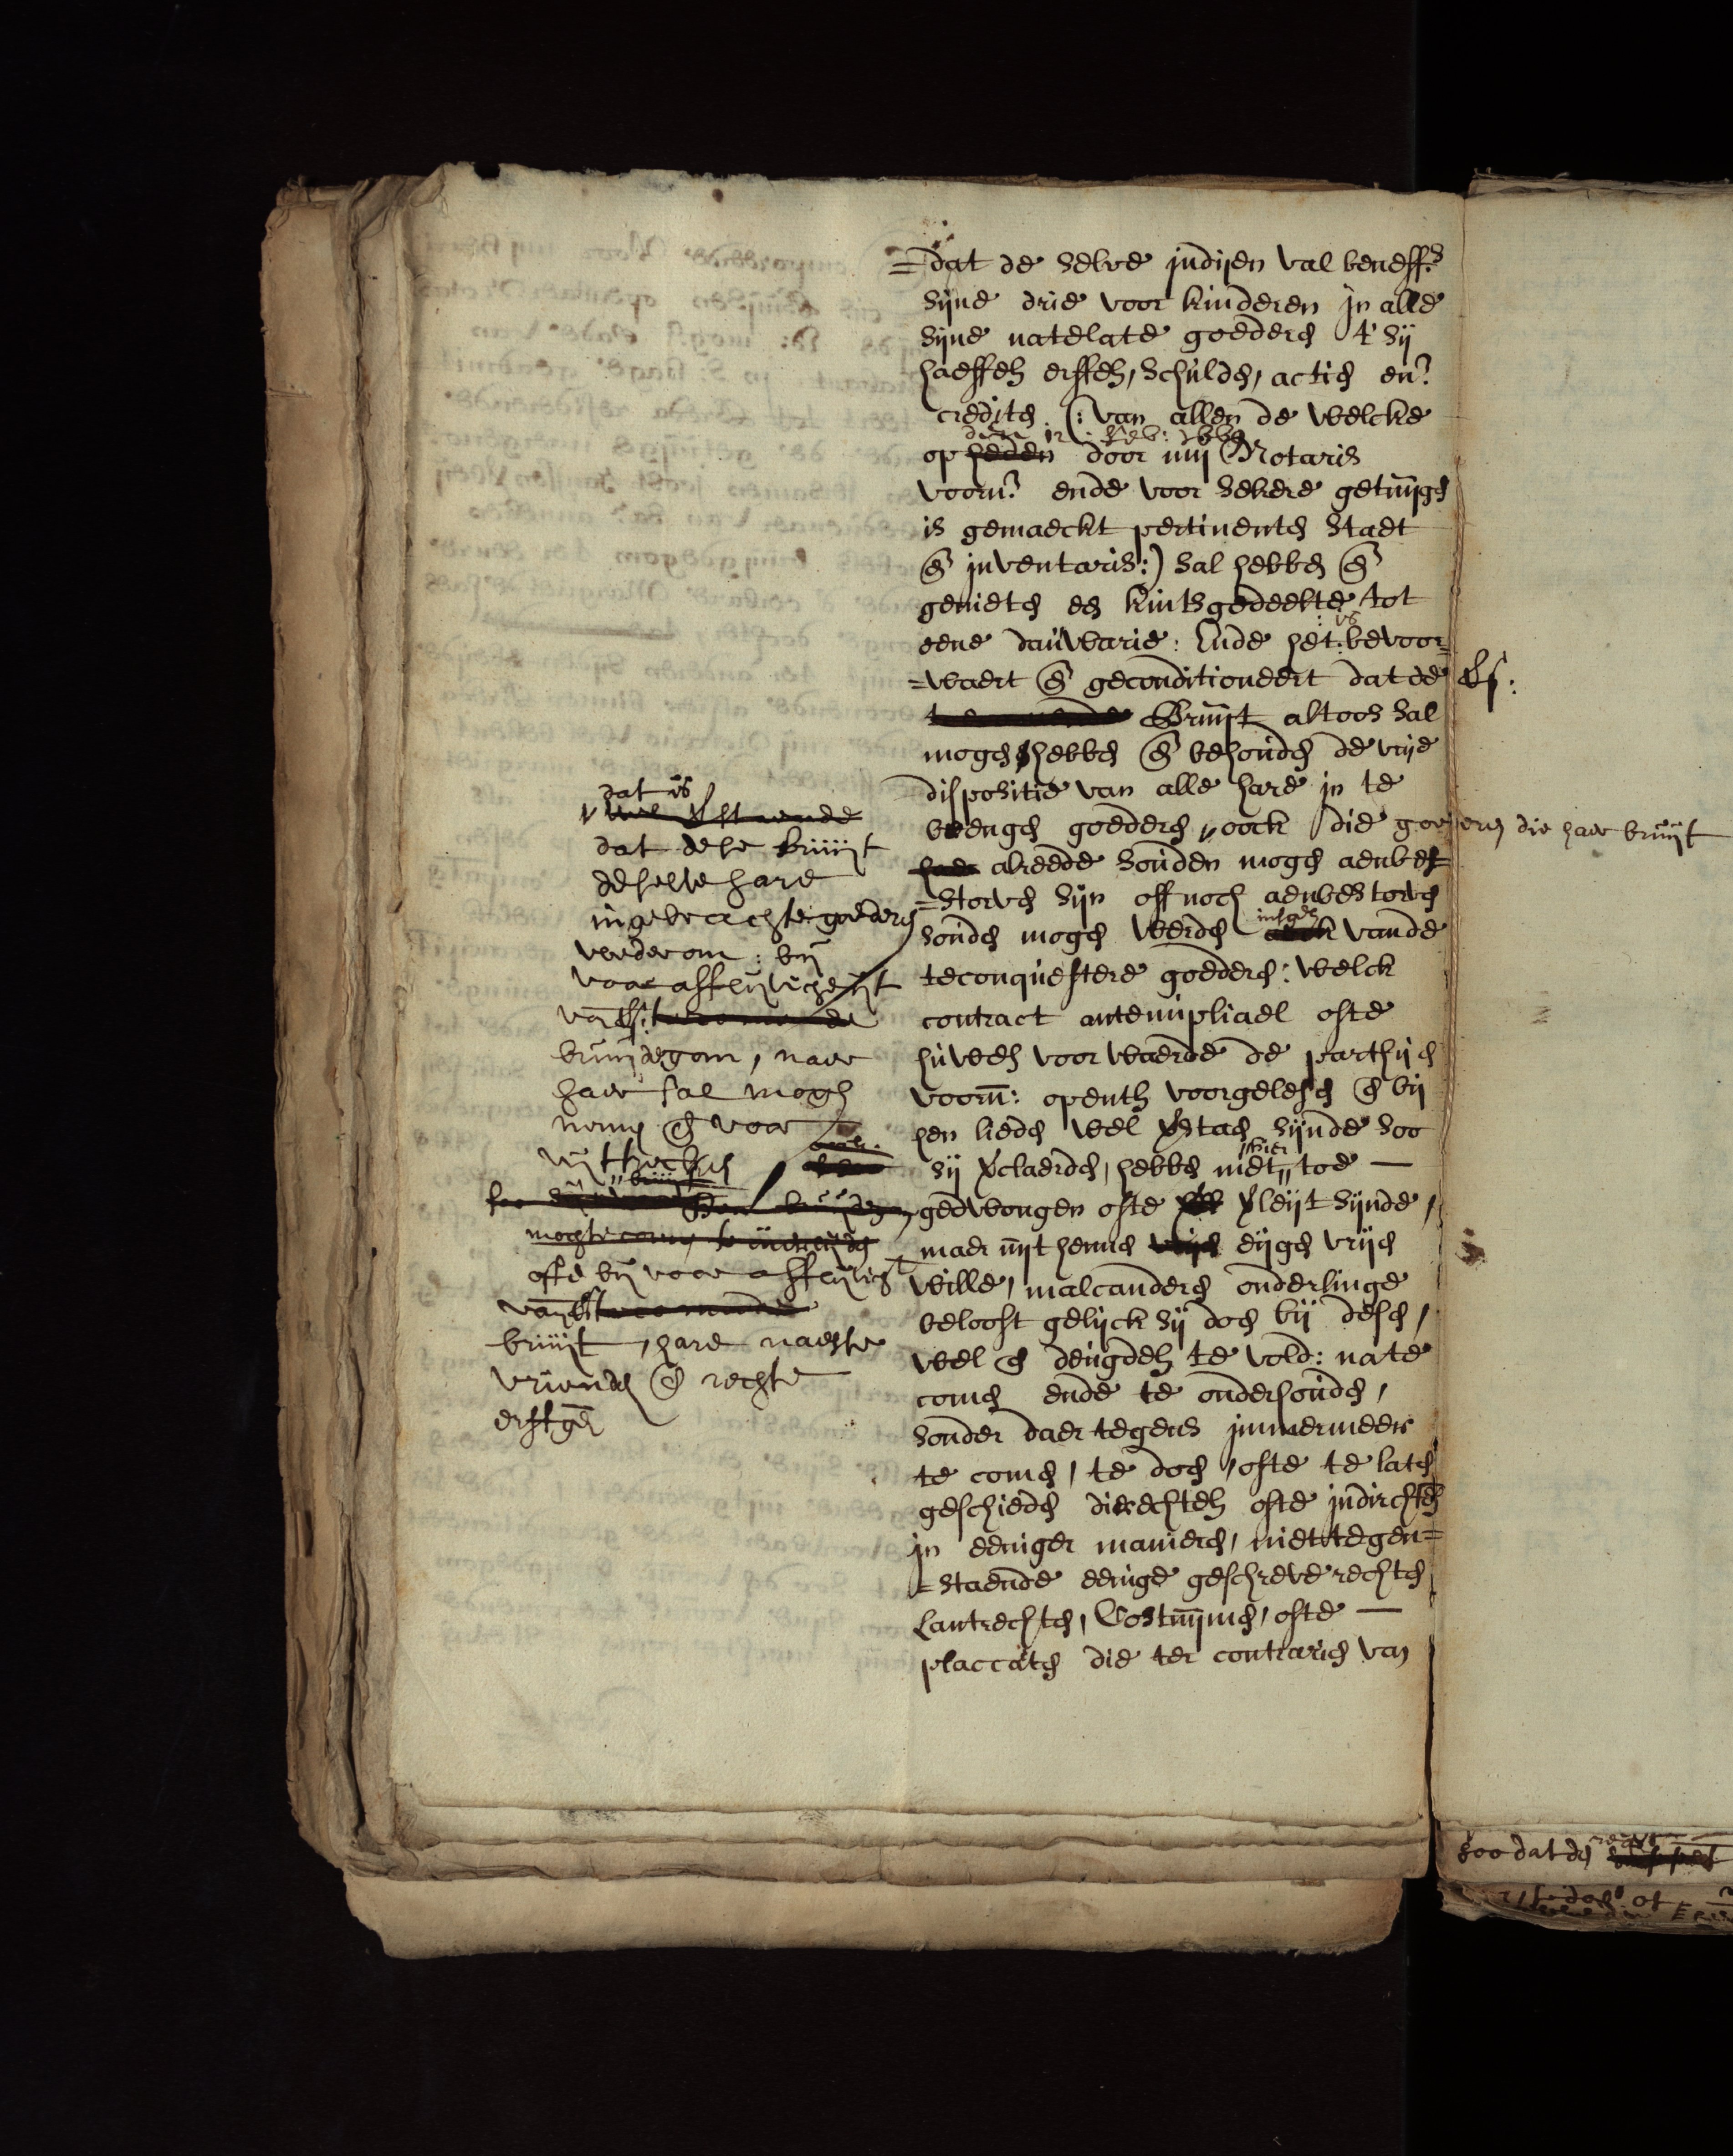 =dat de selve indijen val beneff.s
sijne drie voor kinderen in alle
sijne natelate goederen t' sij
haeffel: erffel:, schulden, actien en?
crediten (: van allen de welcke
op heden door mij Notaris
voorn? ende voor sekere getuijgen
is gemaeckt pertinenten staet
en inventaris:) sal hebben en
genieten een kintsgedeelte tot
eene dauwarie: Ende het: is bevoor=
=waert en geconditioneert dat de
Bruijt altoos sal
mogen hebben en behouden de vrije
dispositie van alle hare in te
brengen goederen, oock die goederen die haer bruijt
alreede souden mogen aenbest
=storven sijn off noch aenbestorven
souden mogen werden vande
teconquestere goederen: welck
contract antenupliael ofte
huwel: voorwaerde de parthijen
voorn: opentl: voorgelesen en bij
hen lieden wel verstaen sijnde soo
sij verclaerden, hebben niet hier toe
gedwongen ofte verleijt sijnde,
maer uijt hennen eijgen vrijen
wille, malcanderen onderlinge
belooft gelijck sij doen bij desen,
wel en deugdel: te vold: nate
comen ende te onderhouden,
sonder daer tegens immermeer
te comen, te doen, ofte te laten
geschieden directel: ofte indirectel:
in eeniger manieren, niettegen=
=staende eenige geschreve rechten
Lantrechten, Costuijmen, ofte
placcaten die ter contrarien van
dat is
dat dese bruijt
deselve hare
ingebrachte goederen
wederom: bij
voor afflijvicheijt
van
bruijdegom, naer
haer sal mogen
nemen en voor
uijt trecken
ofte bij voor afflijvich
van
bruijt, hare naeste
vrienden en rechte
erffgen
soo dat de